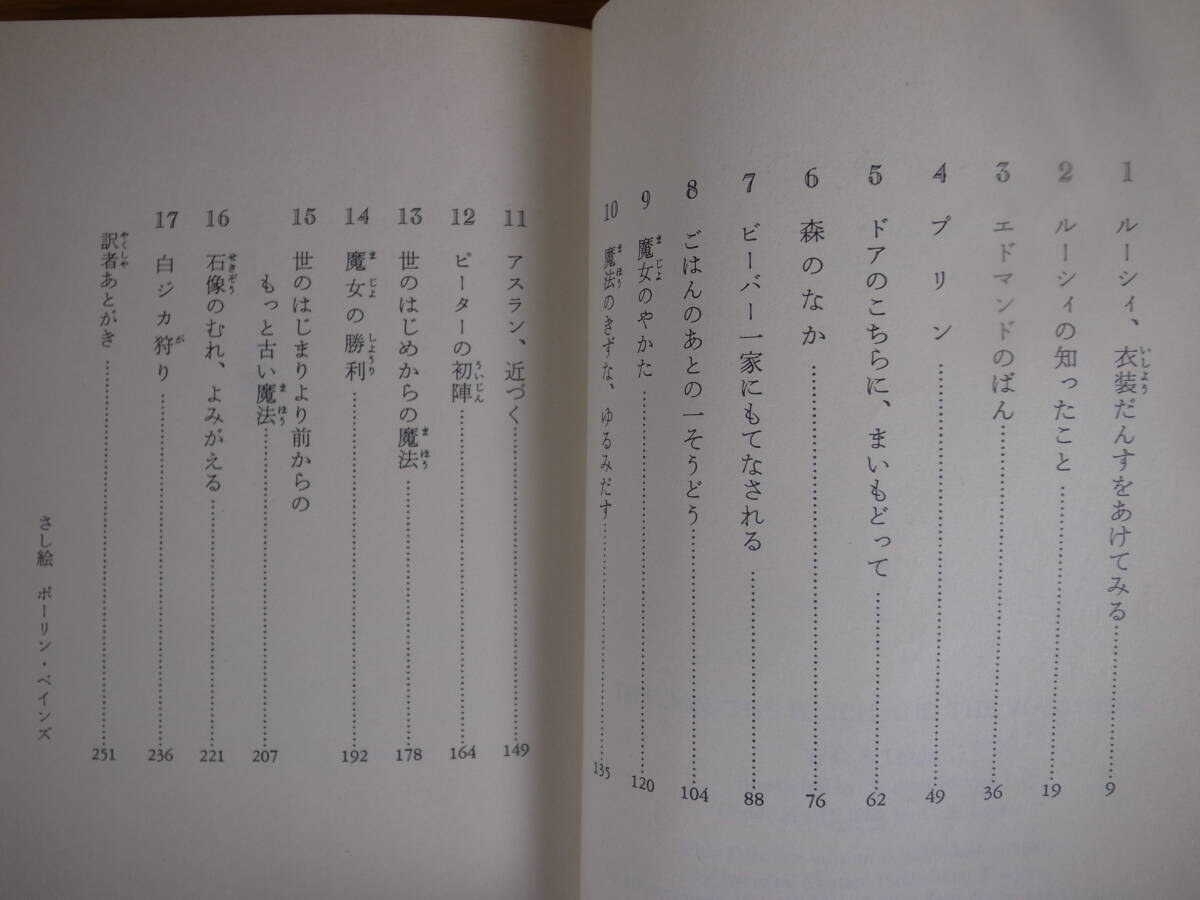 1 ルーシィ、衣装だんすをあけてみる……9
2 ルーシィの知ったこと……19
3 エドマンドのばん……36
4 プリン……49
5 ドアのこちらに、まいもどって……62
6 森のなか……76
7 ビーバー一家にもてなされる……88
8 ごはんのあとの一そうどう……104
9 魔女のやかた……120
10 魔法のきずな、ゆるみだす……135
11 アスラン、近づく……149
12 ピーターの初陣……164
13 世のはじめからの魔法……178
14 魔女の勝利……192
15 世のはじまりより前からの
もっと古い魔法……207
16 石像のむれ、よみがえる……221
17 白ジカ狩り……236
訳者あとがき……251
さし絵 ポーリン・ベインズ